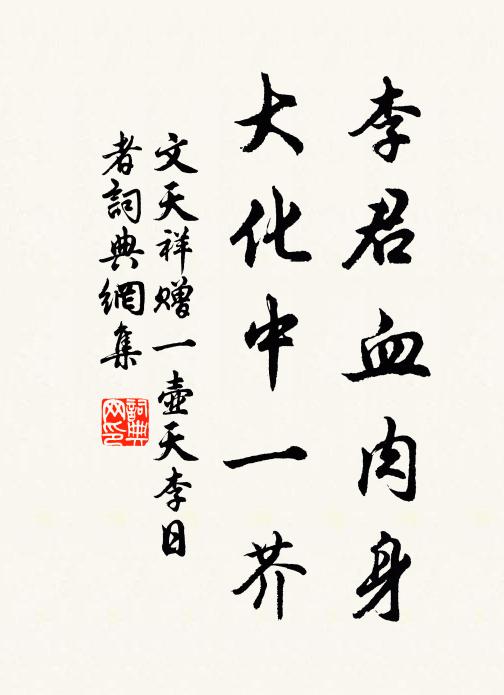 李君血肉身
大化中一芥
文天祥赠一壺天李日
者詞典網集
詞典网印